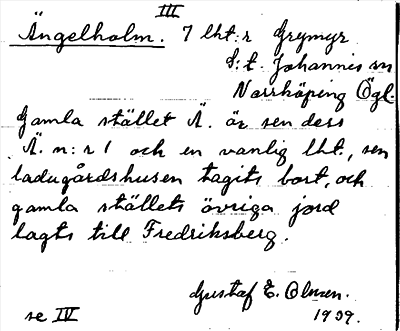 III
Ängelholm. 7 lht:r Grymyr
S:t. Johannis sn
Norrköping Ögl.
Gamla stället Ä. är sen dess
Ä. n:r 1 och en vanlig lht., sen
ladugårdshusen tagits bort, och
gamla ställets övriga jord
lagts till Fredriksberg.
Gustaf E. Olmen.
se IV 1939.